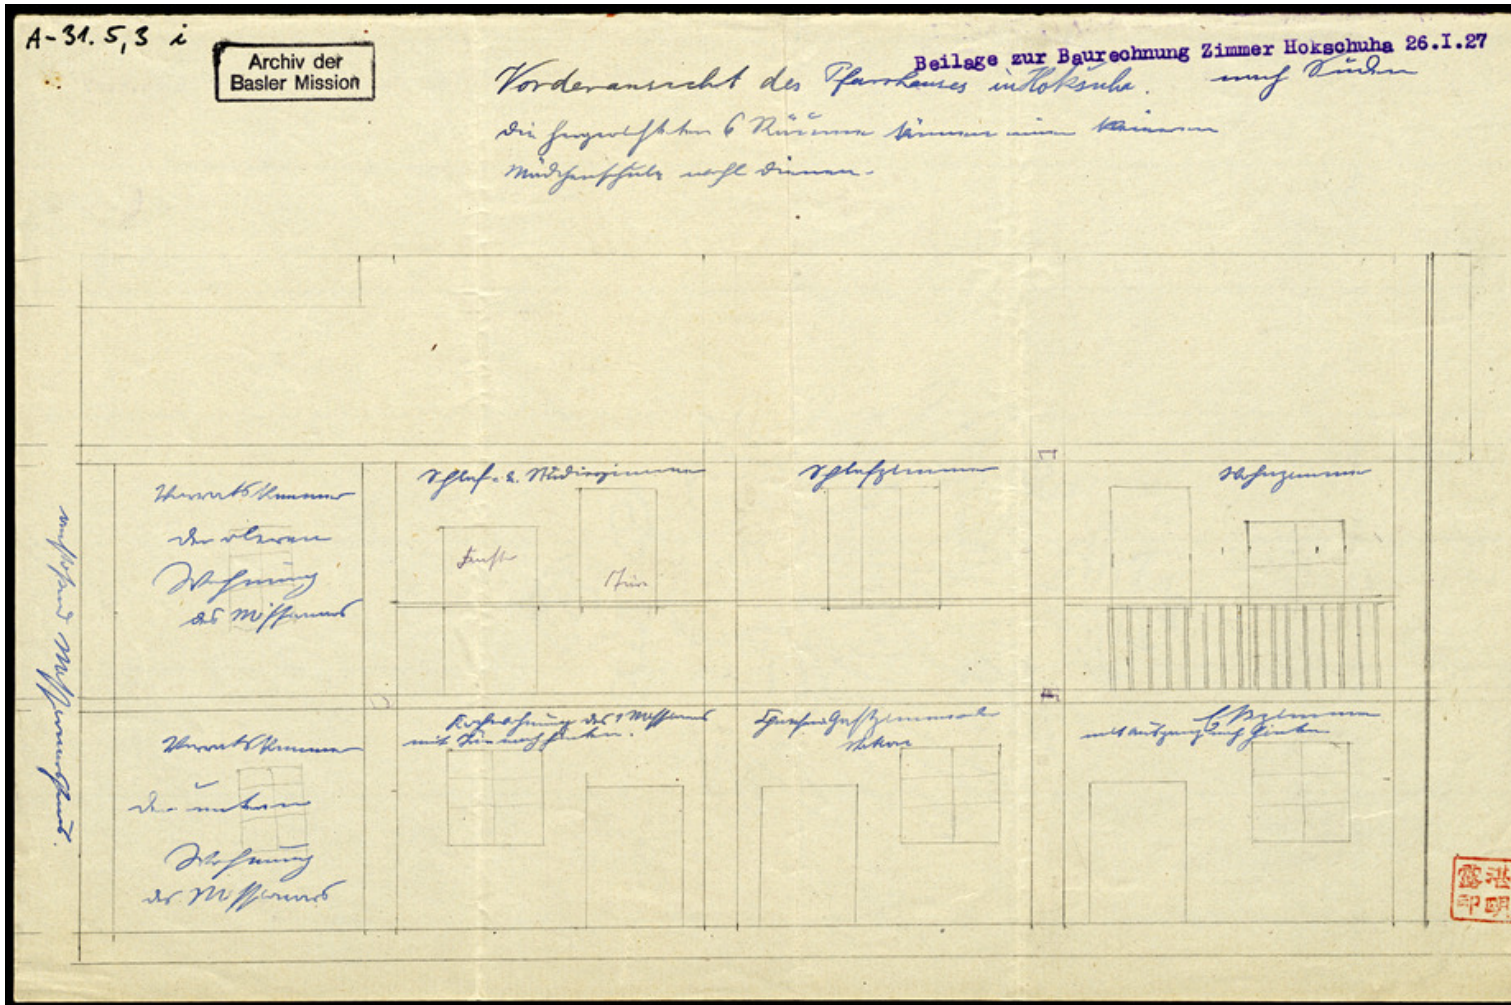 A-31.5,3 i
Archiv der
Basler Mission
Beilage zur Baurechnung Zimmer Hokschuha 26.I.27
Vorderansicht des Pfarrhauses in Hokschuha. nach Süden
Die hergerichteten 6 Räume können einer kleineren
Mädchenschule wohl dienen.
Vorratskammer
der oberen
Wohnung
des Missionars
Schlaf- u. Studierzimmer
Fenster
Türe
Schlafzimmer
Wohnzimmer
anstossend Missionarshaus.
Vorratskammer
der unteren
Wohnung
des Missionars
des Missionars
mit Türe nach hinten.
Esszimmer
mit Ausgang nach hinten